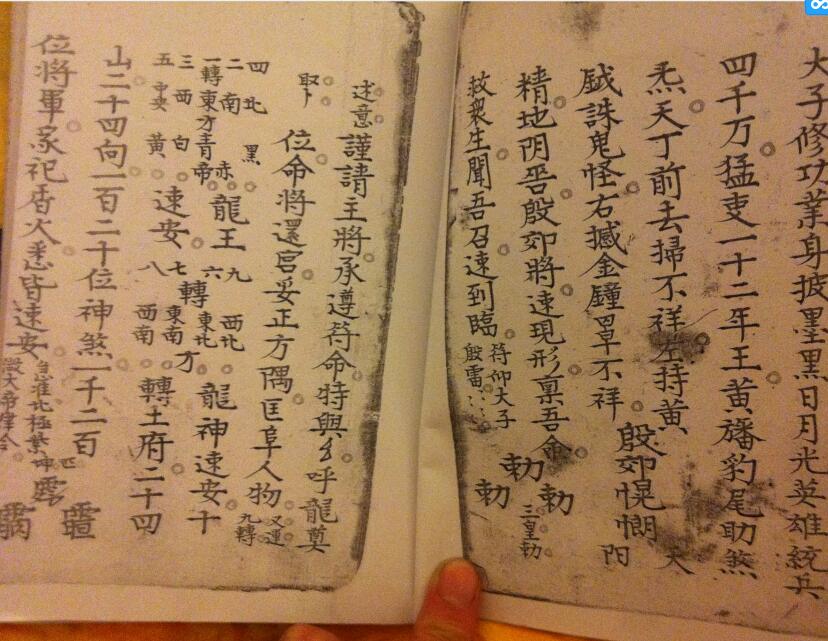 大子修功業身披墨黑日月光英雄統兵
四千万猛吏一十二年王黄旛豹尾助煞
炁天丁前去掃不祥左持黄
天
鉞誅鬼怪右撼金鐘罩不祥
殷郊愰㦂
精地阴啓殷郊將速現形禀吾命
勅勅勅
三皇勅
救衆生聞吾召速到臨
符仰大子
殷雷
述意
謹請主將承遵符命特與厶呼龍奠
位命將還宮妥正方隅匡阜人物
又運
九轉
一轉東方青帝
二南赤
三西白
四北黑
五中央黄
龍王速安
六
七
八
九
轉
東北
東南
西南
西北
方
龍神速安十
轉土府二十四
山二十四向一百二十位神煞一千二百
位將軍家祀香火悉皆速安